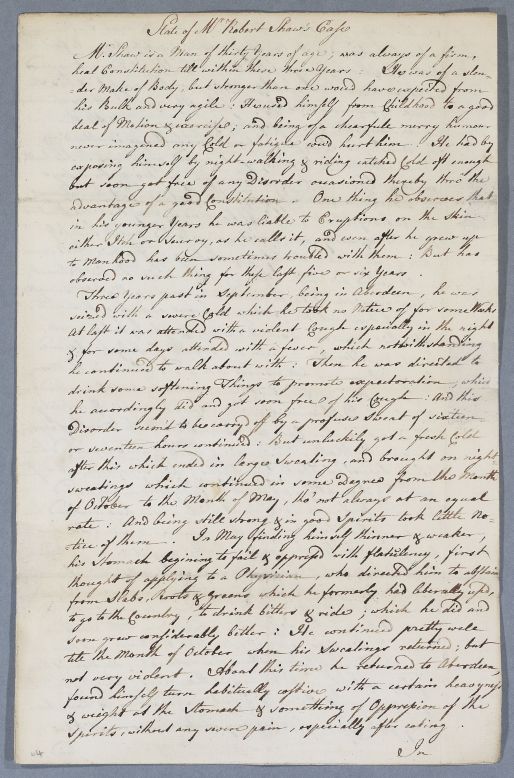 State of Mr. Robert Shaw's Case
Mr. Shaw is a Man of thirty Years of age; was always of a firm,
heal Constitution till within these three Years: He was of a slen-
:der Make of Body, but stronger than one would have expected from
his Bulk and very agile: He used himself from Childhood to a good
deal of Motion & exercise; and being of a chearfule merry humour
never imagined any Cold or fatigue could hurt him. He had by
exposing himself by night-walking & riding catched Cold oft enough
but soon got free of any Disorder occasioned thereby thro' the
advantage of a good Constitution. One thing he observes that
in his younger Years he was liable to Eruptions on the Skin
either Itch or Scurvy, as he calls it, and even after he grew up
to Manhood has been sometimes troubled with them: But has
observed no such thing for these last five or six Years.
Three Years past in September, being in Aberdeen, he was
seized with a severe Cold which he took no Notice of for some Weeks
At last it was attended with a violent Cough especially in the night
& for some days attended with a fever, which notwithstanding
he continued to walk about with: Then he was directed to
drink some softening Things to promote expectoration, which
he accordingly did and got soon free of his Cough: And this
Disorder seemed to be carry'd off by a profuse Sweat of sixteen
or seventeen hours continued: But unluckily got a fresh Cold
after this which ended in large Sweating, and brought on night-
sweatings which continued in some Degree from the Month
of October to the Month of May, tho' not always at an equal
rate: And being still strong & in good Spirits took little No-
:tice of them. In May finding himself thinner & weaker,
his Stomach begining to fail & oppressed with flatulency, first
thought of applying to a Physician, who directed him to abstain
from Slabs, Roots & greens which he formerly had liberally used,
to go to the Country, to drink bitters & ride; which he did and
soon grew considerably better: He continued pretty well
till the Month of October when his Sweatings returned; but
not very violent. About this time he returned to Aberdeen,
found himself turn habitually costive with a certain heavyness
& weight at the Stomach & something of Oppression of the
Spirits, without any severe pain, especially after eating.
In